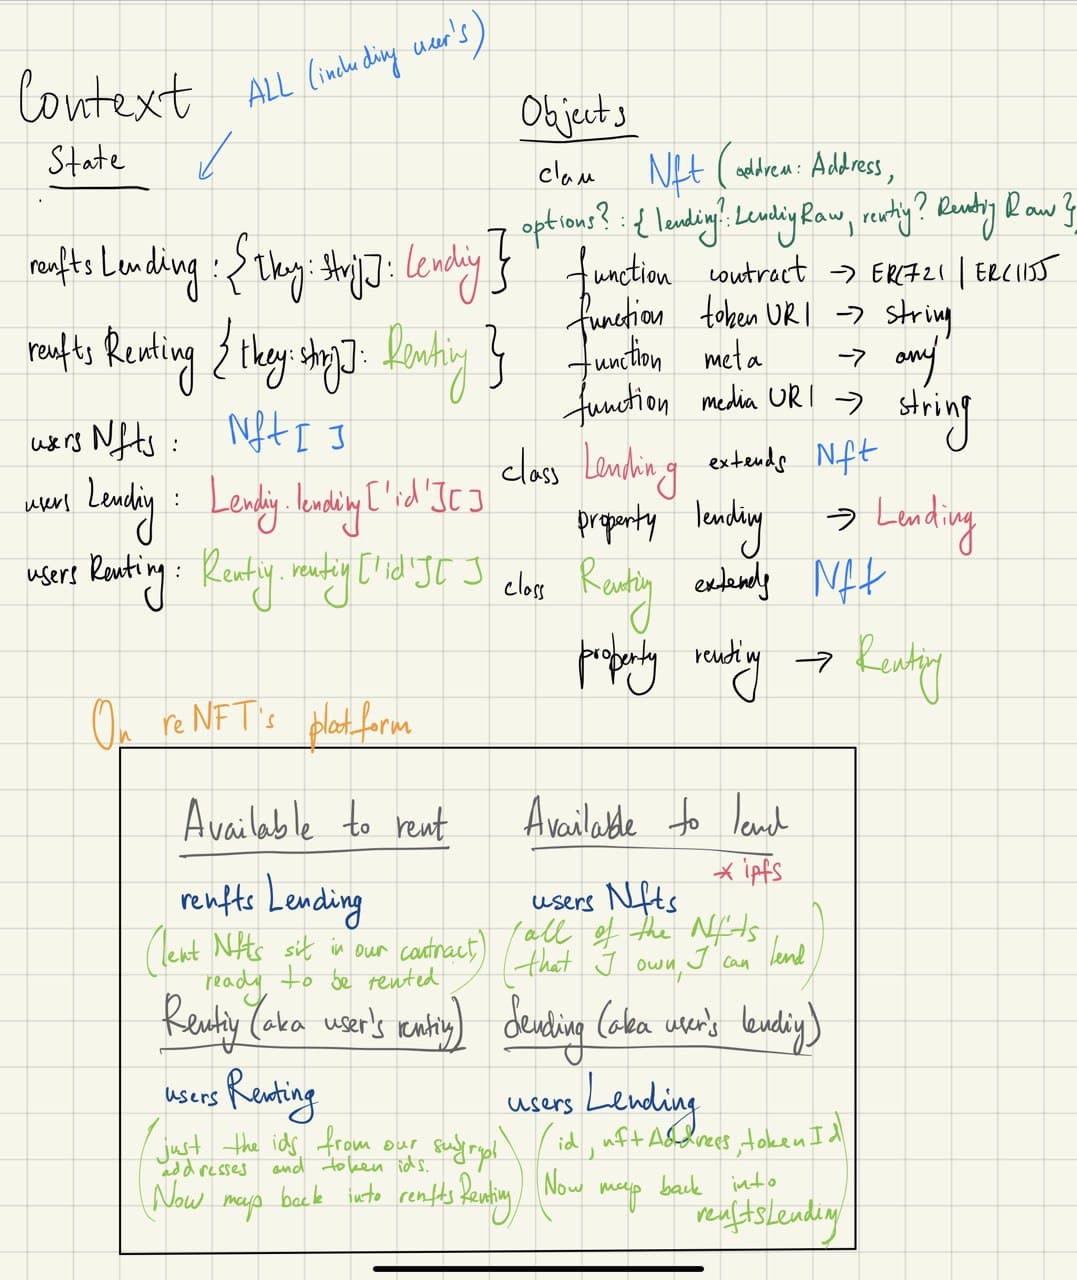 Context
ALL (including user's)
State
renfts Lending : { [key: string]: Lending }
renfts Renting { [key: string]: Renting }
users Nfts : Nft [ ]
users Lending : Lending.lending['id'][]
users Renting : Renting.renting['id'][ ]
Objects
class Nft (address: Address,
options? : { lending?: LendingRaw, renting? Renting Raw },
function contract → ERC721 | ERC1155
function token URI → string
function meta → any
function media URI → string
class Lending extends Nft
property lending → Lending
class Renting extends Nft
property renting → Renting
On reNFT's platform
Available to rent
renfts Lending
(lent Nfts sit in our contract,
ready to be rented)
Available to lend
* ipfs
users Nfts
(all of the Nfts
that I own, I can lend)
Renting (aka user's renting)
users Renting
(just the ids from our subgraph
addresses and token ids.
Now map back into renfts Renting)
Lending (aka user's lending)
users Lending
(id, nftAddress, tokenId
Now map back into
renftsLending)